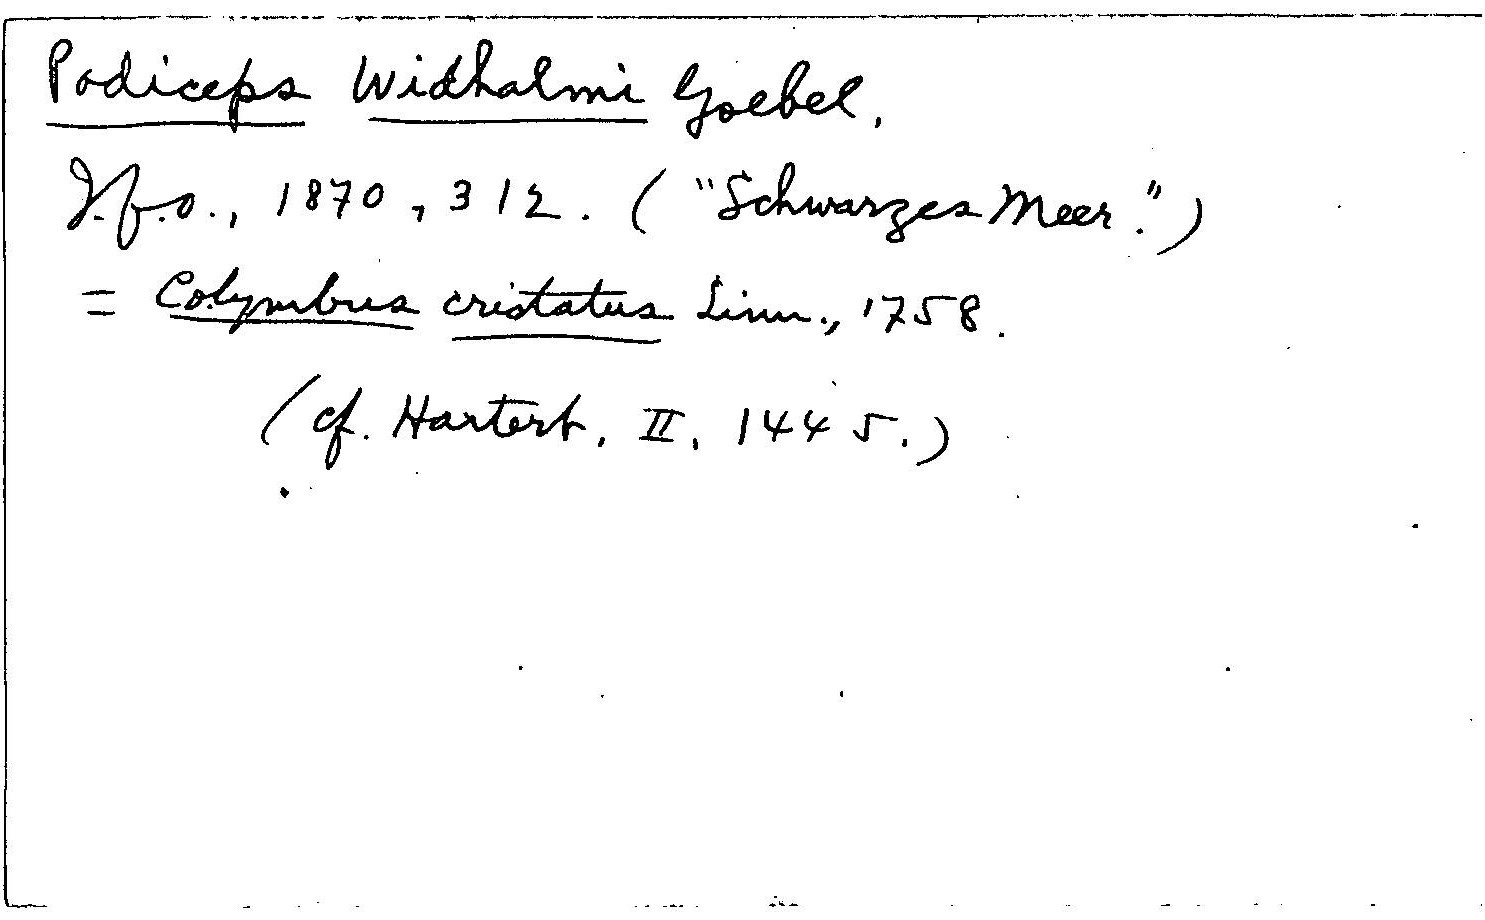 Podiceps Widhalmi Goebel.
J.f.O., 1870, 312. ("Schwarzes Meer.")
= Colymbus cristatus Linn., 1758.
(cf. Hartert, II, 1445.)